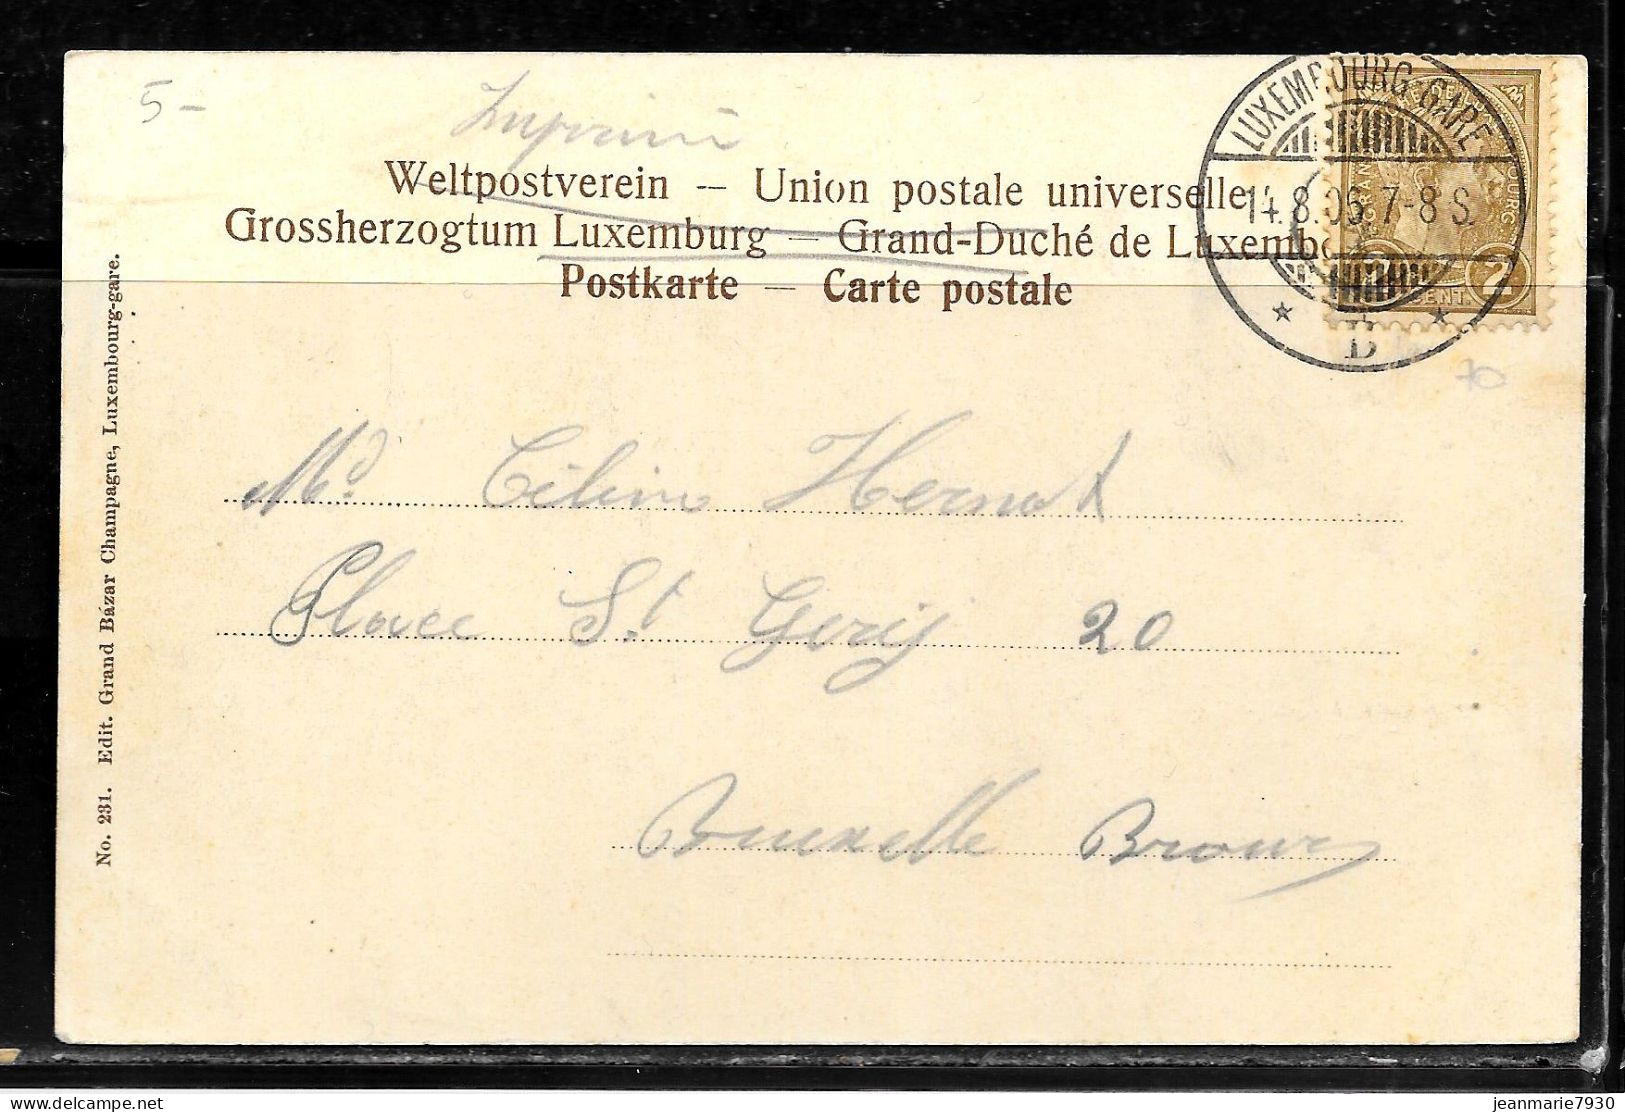 5-
Imprimé
Weltpostverein — Union postale universelle
Grossherzogtum Luxemburg — Grand-Duché de Luxembo
Postkarte — Carte postale
LUXEMBOURG-GARE
14.8.06. 7-8 S.
B
2
CENT.
70
Md. Céline Hernot
Place St. Gerij 20
Bruxelle
No. 231. Edit. Grand Bázar Champagne, Luxembourg-gare.
delcampe.net
jeanmarie7930